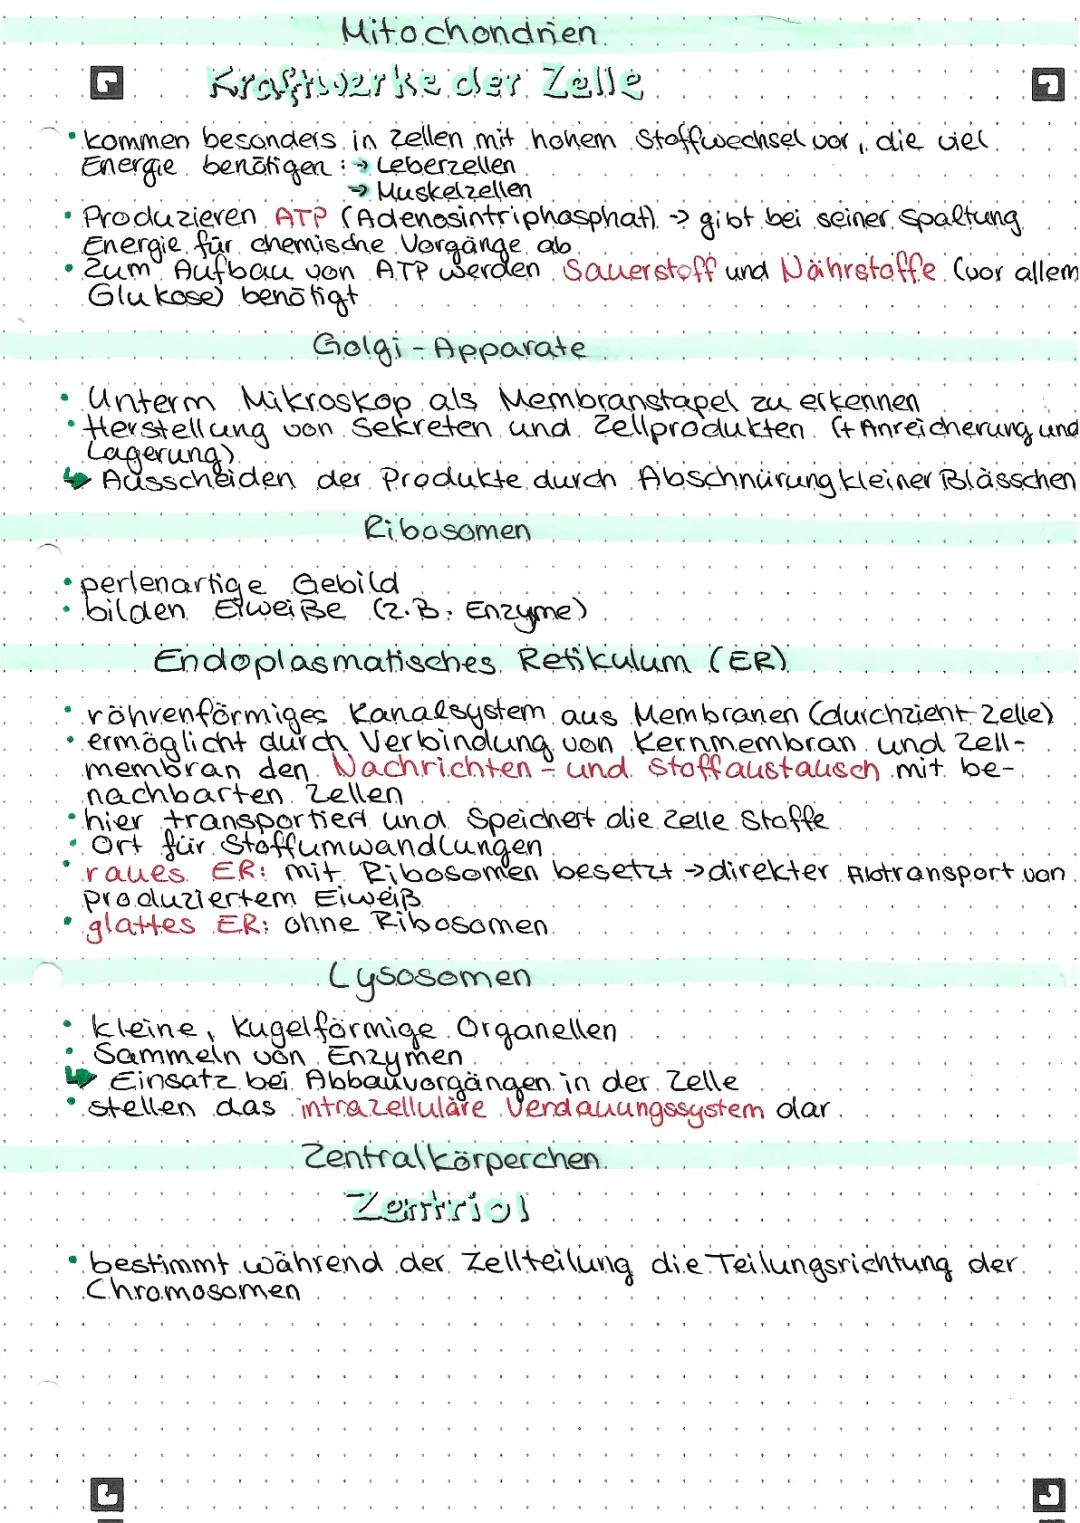 Mitochondrien
Kraftwerke der Zelle
• kommen besonders in Zellen mit hohem Stoffwechsel vor, die viel
Energie benötigen: → Leberzellen
→ Muskelzellen
• Produzieren ATP (Adenosintriphosphat) → gibt bei seiner Spaltung
Energie für chemische Vorgänge ab
• Zum Aufbau von ATP werden Sauerstoff und Nährstoffe (vor allem
Glukose) benötigt
Golgi-Apparate
• Unterm Mikroskop als Membranstapel zu erkennen
• Herstellung von Sekreten und Zellprodukten (+ Anreicherung und
Lagerung)
↳ Ausscheiden der Produkte durch Abschnürung kleiner Blässchen
Ribosomen
• perlenartige Gebild
• bilden Eiweiße (z.B. Enzyme)
Endoplasmatisches Retikulum (ER)
• röhrenförmiges Kanalsystem aus Membranen (durchzieht Zelle)
• ermöglicht durch Verbindung von Kernmembran und Zell-
membran den Nachrichten- und Stoffaustausch mit be-
nachbarten Zellen
• hier transportiert und Speichert die Zelle Stoffe
• Ort für Stoffumwandlungen
• raues ER: mit Ribosomen besetzt → direkter Abtransport von
produziertem Eiweiß
• glattes ER: ohne Ribosomen
Lysosomen
• kleine, kugelförmige Organellen
• Sammeln von Enzymen
↳ Einsatz bei Abbauvorgängen in der Zelle
• stellen das intrazelluläre Verdauungssystem dar
Zentralkörperchen
Zentriol
• bestimmt während der Zellteilung die Teilungsrichtung der
Chromosomen